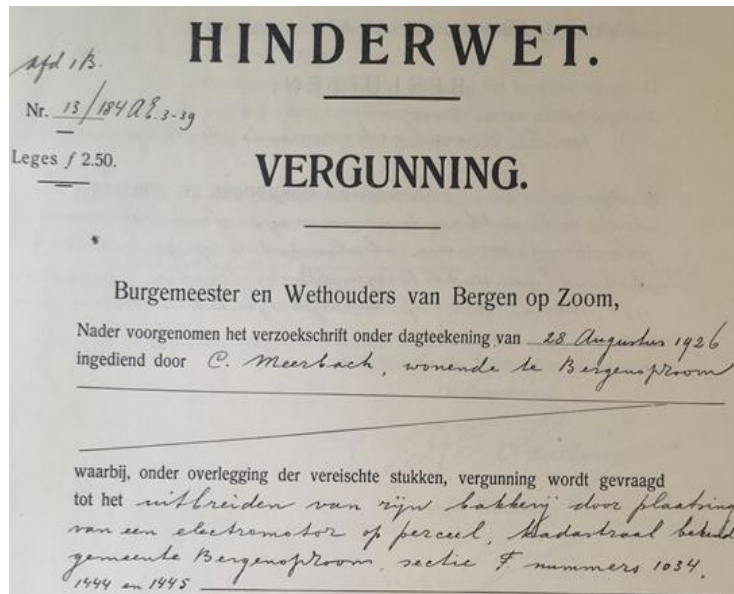 HINDERWET.
afd 1B.
Nr. 13/184 AE. 3-39
Leges f 2.50.
VERGUNNING.
Burgemeester en Wethouders van Bergen op Zoom,
Nader voorgenomen het verzoekschrift onder dagteekening van 28 Augustus 1926
ingediend door C. Meerbach, wonende te Bergenopzoom
waarbij, onder overlegging der vereischte stukken, vergunning wordt gevraagd
tot het uitbreiden van zijn bakkerij door plaatsing
van een electromotor op perceel, kadastraal bekend
gemeente Bergenopzoom, sectie F. nummers 1034,
1444 en 1445